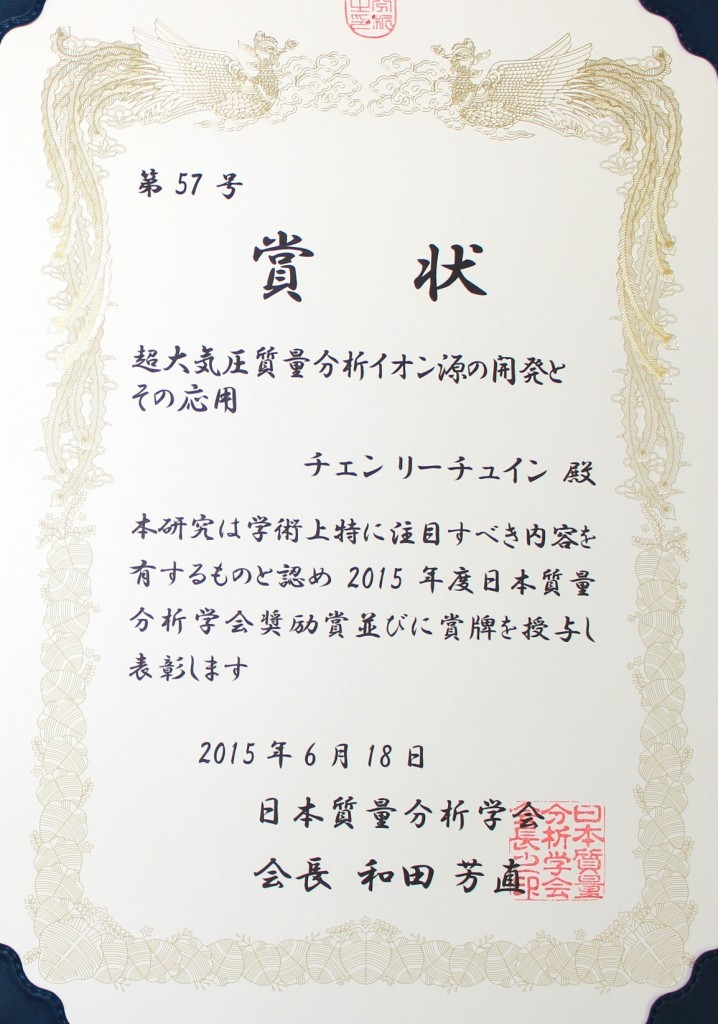 第 57 号
賞 状
超大気圧質量分析イオン源の開発と
その応用
チェン リーチュイン 殿
本研究は学術上特に注目すべき内容を
有するものと認め 2015 年度日本質量
分析学会奨励賞並びに賞牌を授与し
表彰します
2015 年 6 月 18 日
日本質量分析学会
会長 和田 芳直
日本質量
分析学会
会長之印